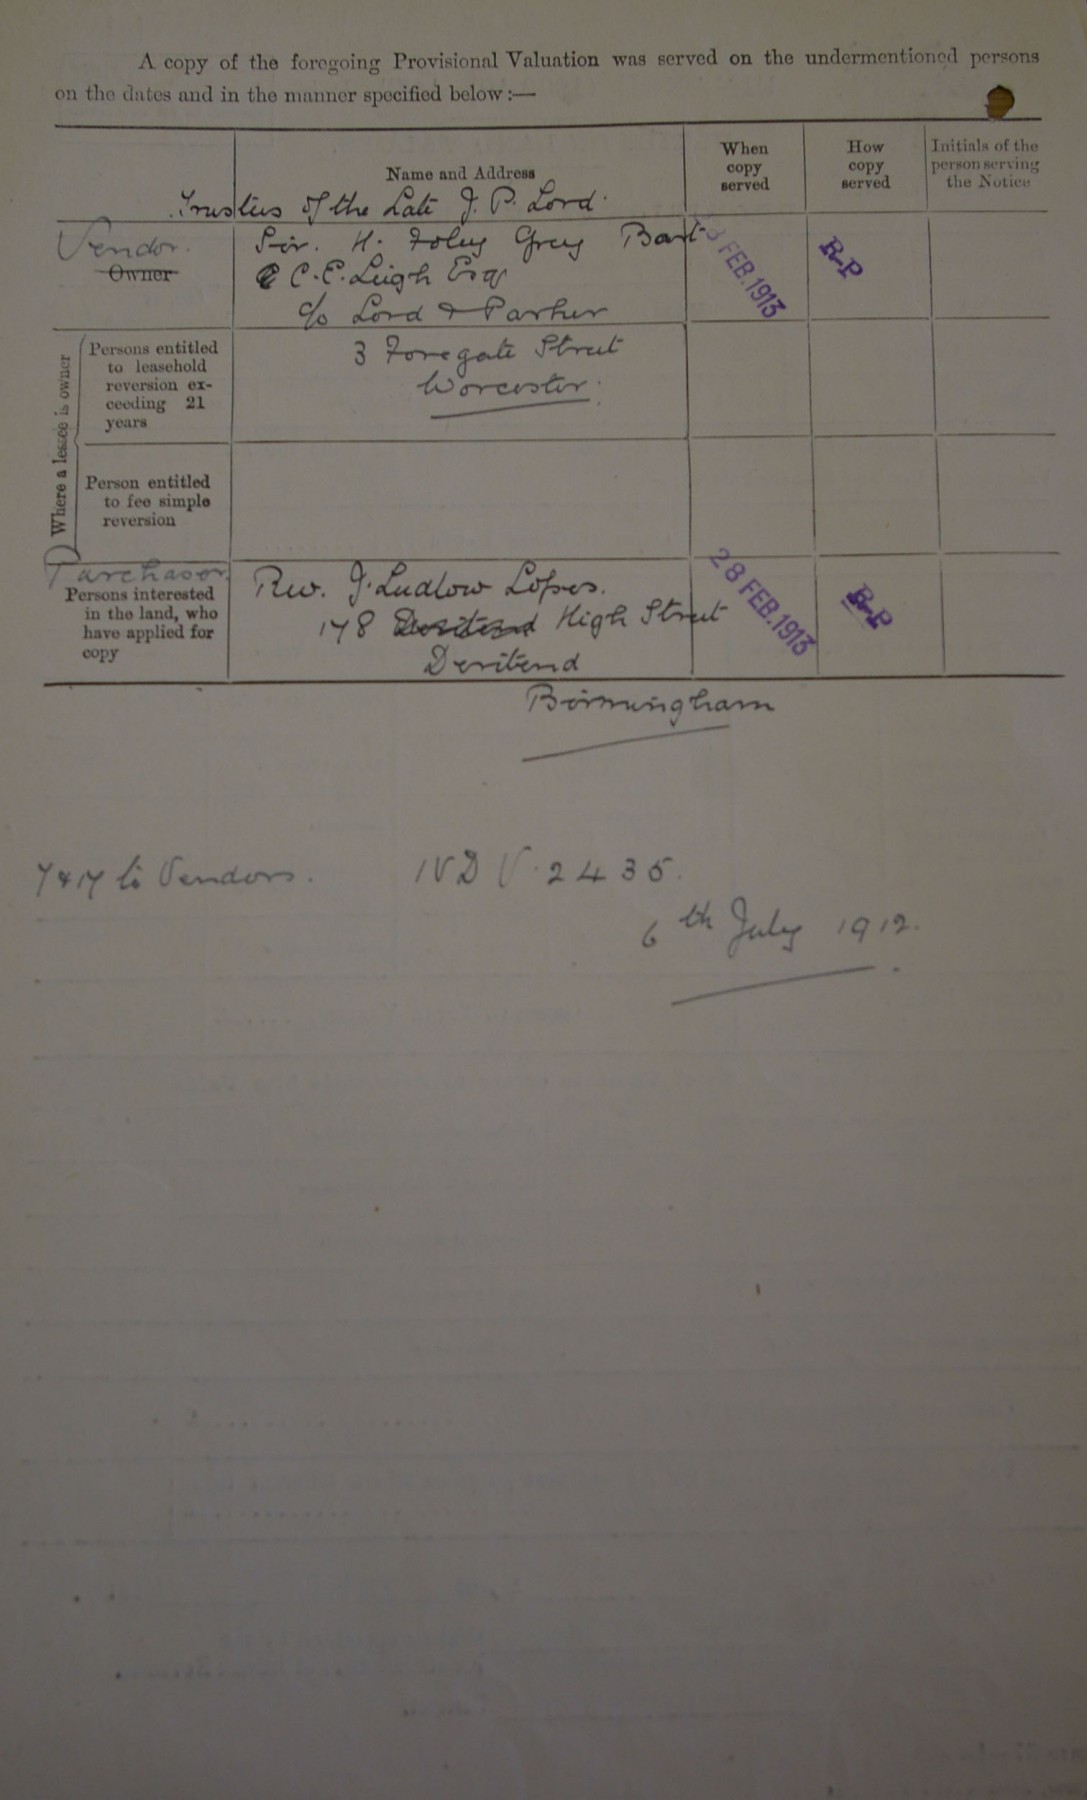 A copy of the foregoing Provisional Valuation was served on the undermentioned persons
on the dates and in the manner specified below:—
Name and Address
When
copy
served
How
copy
served
Initials of the
person serving
the Notice
Trustees of the Late J. P. Lord.
Vendor.
Owner
Sir. H. Foley Grey Bart
& C. E. Leigh Esq
c/o Lord & Parker
8 FEB. 1913
R-P
Where a lessee is owner
Persons entitled
to leasehold
reversion ex-
ceeding 21
years
3 Foregate Street
Worcester.
Person entitled
to fee simple
reversion
Purchaser
Persons interested
in the land, who
have applied for
copy
Rev. J. Ludlow Lopes.
178 Deritend High Street
Deritend
Birmingham
28 FEB. 1913
R-P
to Vendors. IVD V. 2435.
6th July 1912.